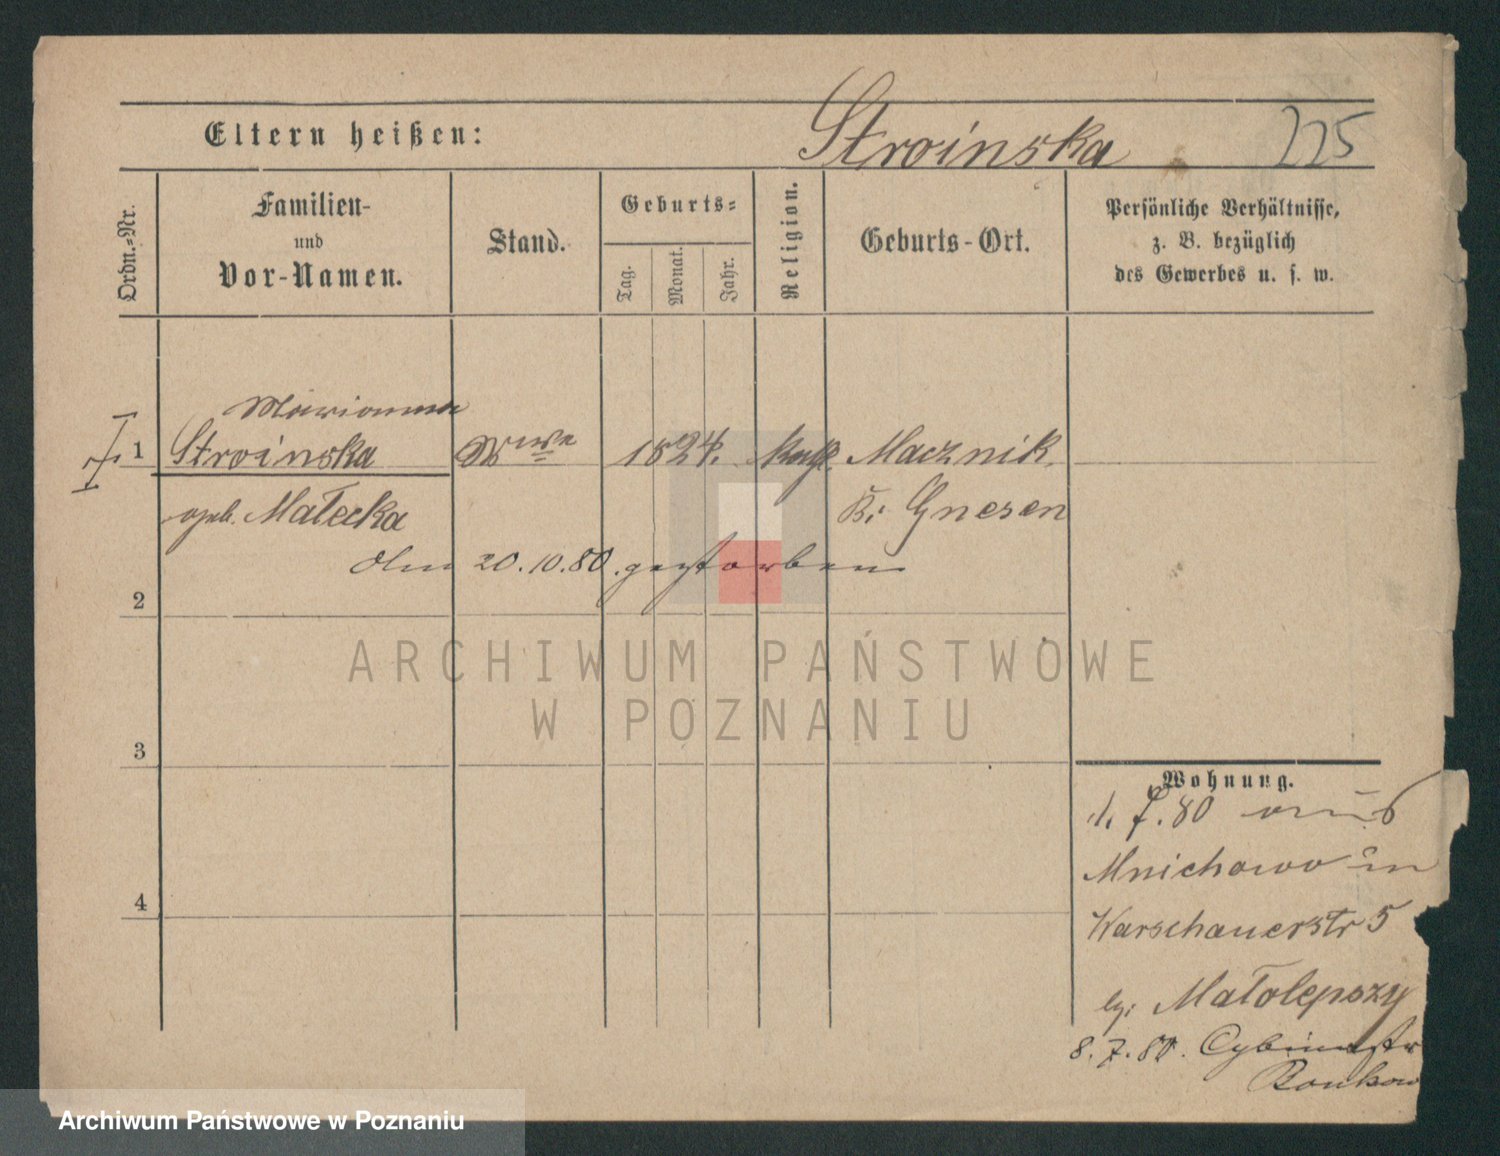 Eltern heißen:
Stroinska
225
Ordn.-Nr.
Familien-
und
Vor-Namen.
Stand.
Geburts-
Tag.
Monat.
Jahr.
Religion.
Geburts-Ort.
Persönliche Verhältnisse,
z. B. bezüglich
des Gewerbes u. s. w.
Marianna
1 Stroinska Wwe 1824. kath. Macznik
geb. Małecka Kr: Gnesen
den 20.10.80. gestorben
2
ARCHIWUM PAŃSTWOWE
W POZNANIU
3
4
Wohnung.
1.7.80 aus
Mnichowo in
Warschauerstr 5
by: Małolepszy
8.7.80. Cybinastr
Archiwum Państwowe w Poznaniu